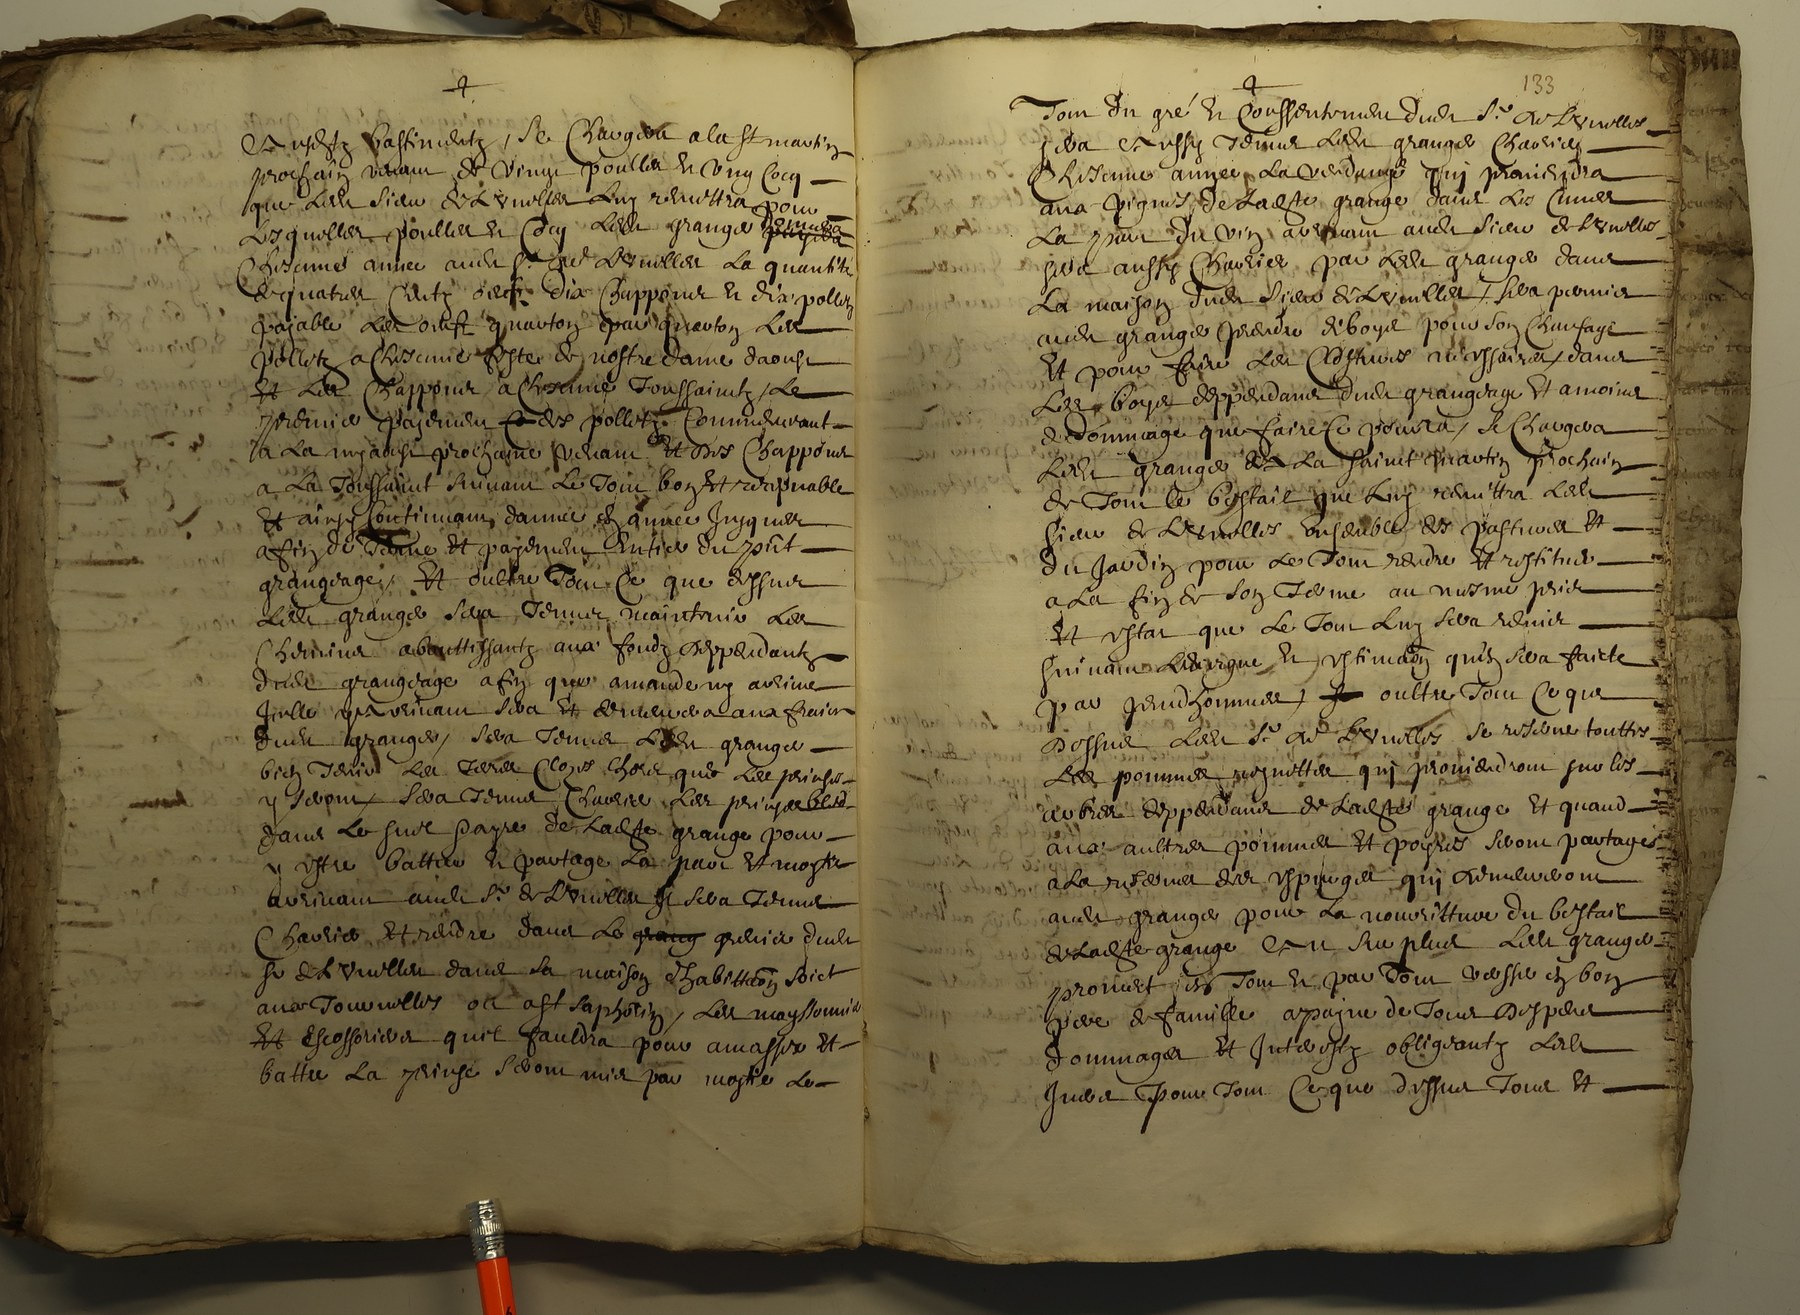 ✝
et ustz bastimentz, se chargera a la st martin
prochain venant de vingt poulles et ung cocq
que ledt sieur de Lesnolles luy remettra pour
lesquelles poulles et cocq ledt granger donnera
chescune annee audt sr de Lesnolles la quantite
de quatres centz oeufz dix chappons et dix polletz
payable les oeufz quarton par quarton les
polletz a chescune feste de nostre dame daoust
et les chappons a chescune Toussainctz, le
premier payement des polletz commencant
a la my aoust prochaine venant et des chappons
a la Toussainct suivant le tout bon et recepvable
et ainsy continuant dannee en annee jusques
a fin de terme et payement entier du pnt
grangeage, Et oultre tout ce que dessus
ledt granger sera tenus maintenir les
chemins aboutissantz aux fondz deppendantz
dudt grangeage afin que amande ny advine
icelle advenant sera et demeurera aux fraicz
dudt granger, sera tenus ledt granger
bien tenir les terres closes lhors que les prinses
y seront, sera tenus charrier les prinses bled
dans le suel dayre de ladte grange pour
y estre battue et partage la part et moytie
advenant audt sr de Lesnolles sera tenus
charrier et rendre dans le grenier dudt
sr de Lesnolles dans sa maison dhabitation soict
aux Tournelles ou a st Saphorin, les mayssonniers
et escossoriers quil fauldra pour amasser et
battre la prinse seront mis par moytie le
✝
133
Tout du gré et consentement dudt sr de Lesnolles
sera aussy tenus ledt granger charrier
chescune annee la vendange quy proviendra
aux vignes de ladte grange dans les cuves
la part du vin advenant audt sieur de Lesnolles
sera aussy charrier par ledt granger dans
la maison dudt sieur de Lesnolles, sera permis
audt granger prendre de boys pour son chaufage
et pour faire les clostures necessaires dans
les boys deppendans dudt grangeage et a moins
de dommage que faire ce pourra, se chargera
ledt granger a la sainct martin prochain
de tout le bestail que luy remettra ledt
sieur de Lesnolles ensemble des pastures et
du jardin pour le tout rendre et restituer
a la fin de son terme au mesme pris
et estat que le tout luy sera remis
suivant et estimation quen sera faicte
par prudhommes, oultre tout ce que
dessus ledt sr de Lesnolles se reserve touttes
les pommes reynettes quy proviendront sur les
arbres deppendans de ladte grange et quand
aux aultres pommes et poyres seront partages
a la reserve des espinges quy demeureront
audt granger pour la nourritture du bestail
de ladte grange et au surplus ledt granger
promet en tout et par tout vessre en bon
pere de famille a payne de tous despens
dommages et interestz obligeantz lesdt
pour tout ce que dessus tous et